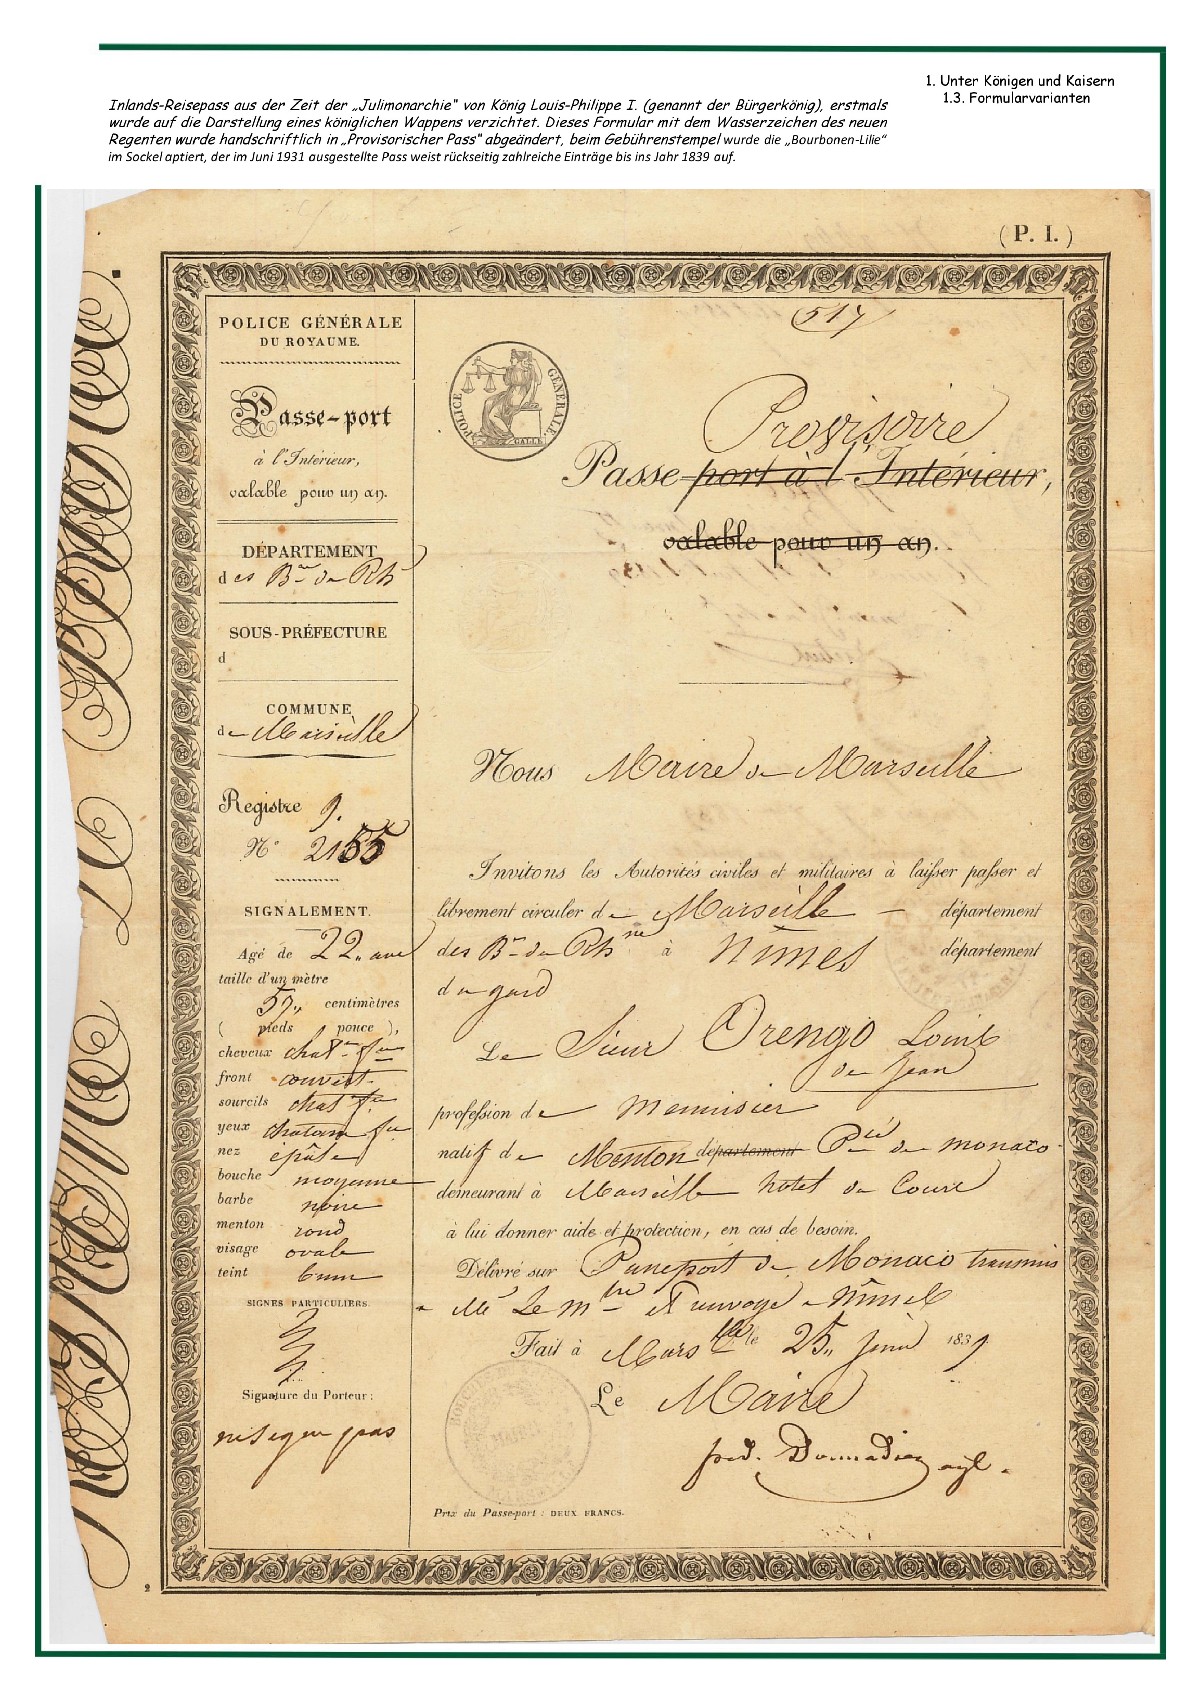 1. Unter Königen und Kaisern
1.3. Formularvarianten
Inlands-Reisepass aus der Zeit der „Julimonarchie“ von König Louis-Philippe I. (genannt der Bürgerkönig), erstmals
wurde auf die Darstellung eines königlichen Wappens verzichtet. Dieses Formular mit dem Wasserzeichen des neuen
Regenten wurde handschriftlich in „Provisorischer Pass“ abgeändert, beim Gebührenstempel wurde die „Bourbonen-Lilie“
im Sockel aptiert, der im Juni 1931 ausgestellte Pass weist rückseitig zahlreiche Einträge bis ins Jahr 1839 auf.
(P. I.)
POLICE GÉNÉRALE
DU ROYAUME.
Passe-port
à l'Intérieur,
valable pour un an.
DÉPARTEMENT
des Bes du Rh
SOUS-PRÉFECTURE
d
COMMUNE
de Marseille
Registre 9.
N° 2155
SIGNALEMENT.
Agé de 22 ans
taille d'un mètre
57 centimètres
( pieds pouce ),
cheveux
front couvert
sourcils
yeux
nez épaté
bouche moyenne
barbe noire
menton rond
visage ovale
teint brun
SIGNES PARTICULIERS.
Signature du Porteur :
ne signe pas
517
POLICE GÉNÉRALE.
Provisoire
Passe port à l'Intérieur,
valable pour un an.
Nous Maire de Marseille
Invitons les Autorités civiles et militaires à laisser passer et
librement circuler de Marseille département
des B du Rhne à Nîmes département
du gard
Le Sieur Orengo
de Jean
profession de Menuisier
natif de Menton département Pté de monaco
demeurant à Marseille hotel du Cours
à lui donner aide et protection, en cas de besoin.
Délivré sur Passeport de Monaco transmis
à Mr Le mtre et renvoyé à Nîmes
Fait à Marslle le 25 juin 1831
Le Maire
Prix du Passe-port : DEUX FRANCS.
2